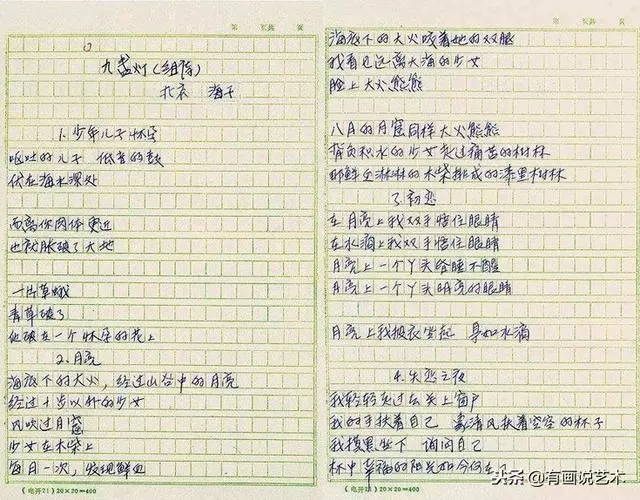 九盏灯(组诗)
北京 海子
1.少年儿子怀孕
呕吐的儿子 低音的鼓
伏在海水深处
而离你肉体更近
也就胀破了大地
一片草蛾
青草破了
他破在一个怀孕的花上
2.月亮
海底下的大火,经过山谷中的月亮
经过十步以外的少女
风吹过月窟
少女在木柴上
每月一次,发现鲜血
(电开21)20×20=400
海底下的大火咬着她的双腿
我看见远离大海的少女
脸上大火熊熊
八月的月窟同样大火熊熊
背负积水的少女走过痛苦的树林
那鲜血淋淋的木柴排成的漆黑树林
3.初恋
在月亮上我双手捂住眼睛
在水滴上我双手捂住眼睛
月亮上一个丫头昏睡不醒
月亮上一个丫头明亮的眼睛
月亮上我披衣坐起 身如水滴
4.失恋之夜
我轻轻走过去关上窗户
我的手扶着自己 像清风扶着空空的杯子
我摸黑坐下 询问自己
杯中幸福的阳光如今何在
(电开21)20×20=400
头条@有画说艺术